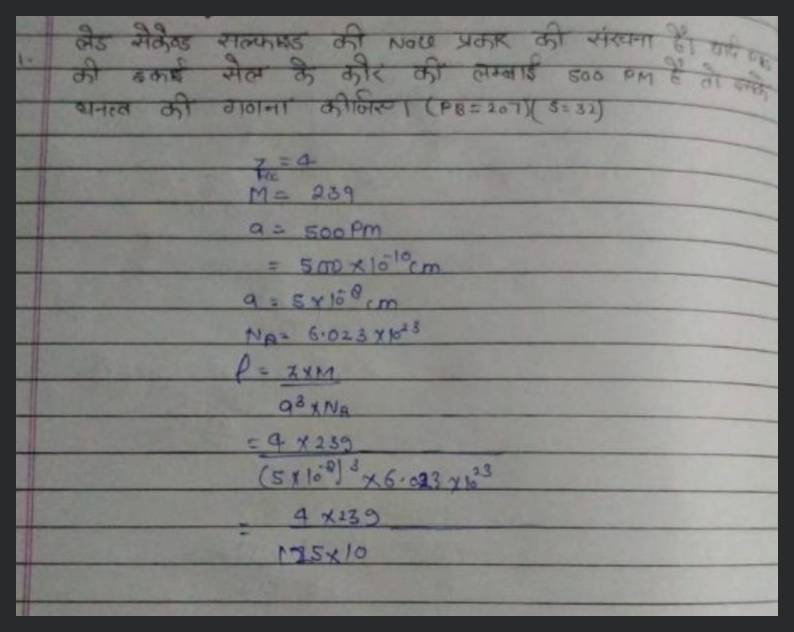 1. लेड सेकेण्ड सल्फाइड की Nacl प्रकार की संरचना है। यदि
की इकाई सेल के कोर की लम्बाई 500 PM है तो इसके
धनत्व की गणना कीजिए। (PB=207)(S=32)
z = 4
M = 239
a = 500 Pm
= 500 × 10⁻¹⁰ cm
a = 5 × 10⁻⁸ cm
NA = 6.023 × 10²³
ρ = z×M
a³ × NA
= 4 × 239
(5 × 10⁻⁸)³ × 6.023 × 10²³
= 4 × 239
125 × 10